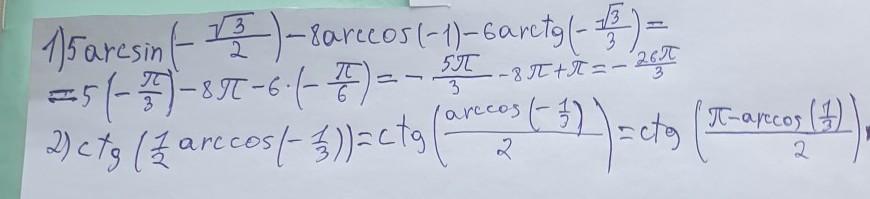 1) 5 arcsin(-√3/2) - 8 arccos(-1) - 6 arctg(-√3/3) =
= 5(-π/3) - 8π - 6·(-π/6) = -5π/3 - 8π + π = -26π/3
2) ctg(1/2 arccos(-1/3)) = ctg(arccos(-1/3)/2) = ctg(π-arccos(1/3)/2)